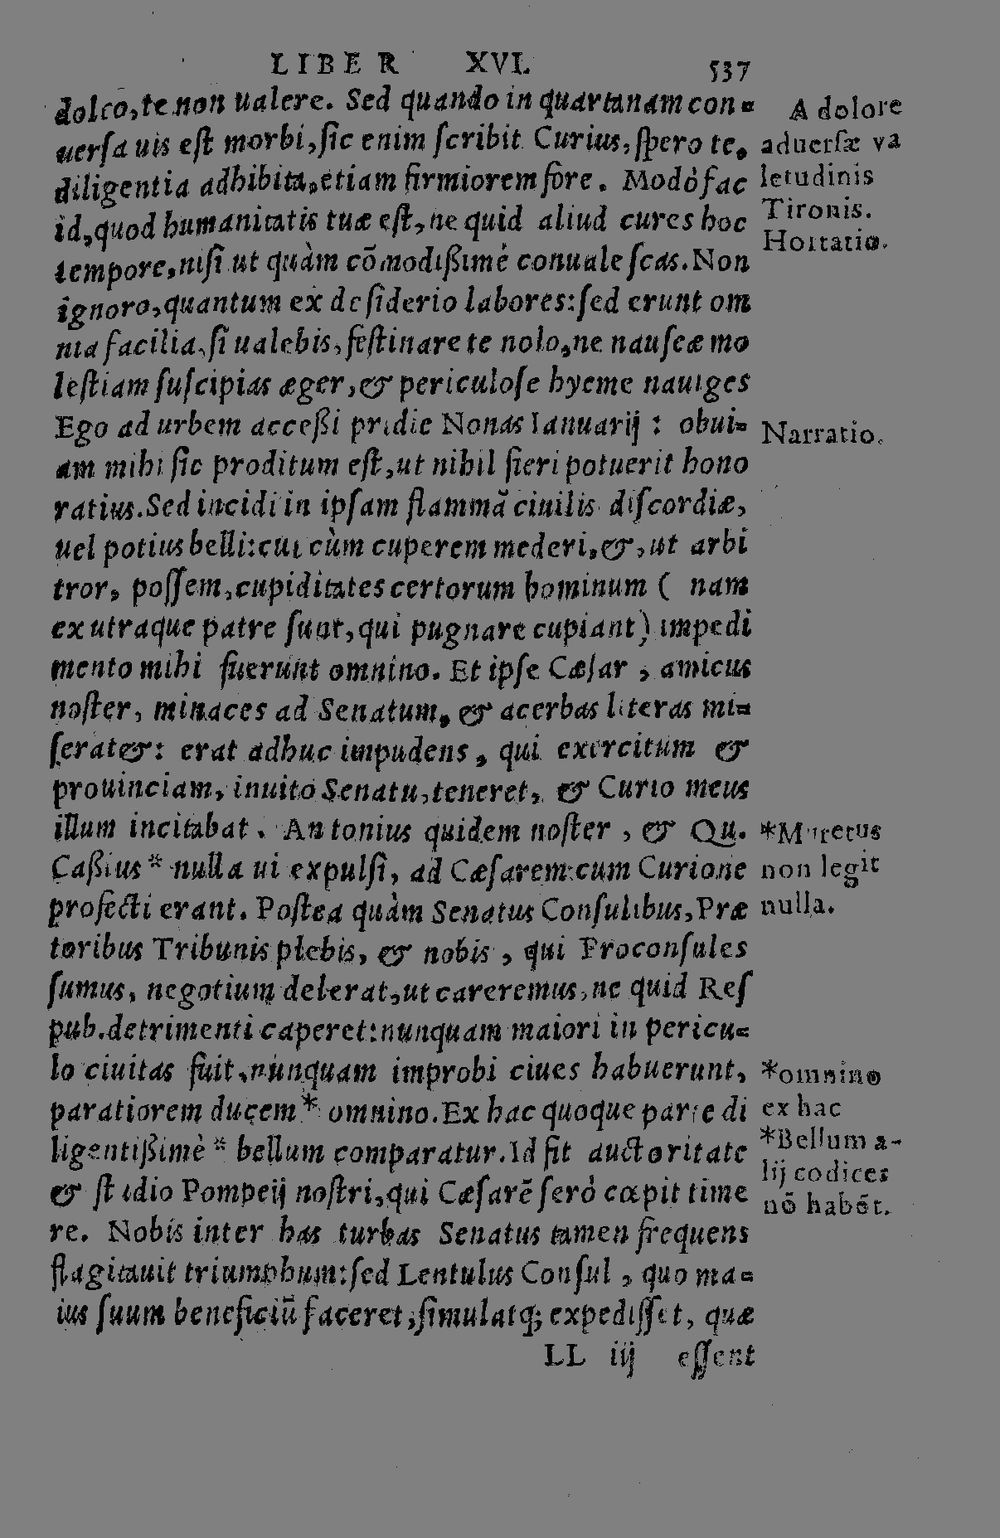 LIBER XVI. 537
dolco, te non ualere. Sed quando in quartanam con=
uersa uis est morbi, sic enim scribit Curius, spero te,
diligentia adhibita, etiam firmiorem fore. Modò fac
id, quod humanitatis tuæ est, ne quid aliud cures hoc
tempore, nisi ut quàm cõmodißimè conualescas. Non
ignoro, quantum ex desiderio labores: sed erunt om
nia facilia, si ualebis, festinare te nolo, ne nauseæ mo
lestiam suscipias æger, & periculose hyeme nauiges
Ego ad urbem acceßi pridie Nonas Ianuarij : obui=
am mihi sic proditum est, ut nihil fieri potuerit hono
ratius. Sed incidi in ipsam flammã ciuilis discordiæ,
uel potius belli: cui cùm cuperem mederi, &, ut arbi
tror, possem, cupiditates certorum hominum ( nam
ex utraque patre sunt, qui pugnare cupiant) impedi
mento mihi fuerunt omnino. Et ipse Cæsar, amicus
noster, minaces ad Senatum, & acerbas literas mi=
serat&: erat adhuc impudens, qui exercitum &
prouinciam, inuito Senatu, teneret, & Curio meus
illum incitabat. Antonius quidem noster, & Qu.
Caßius * nulla ui expulsi, ad Cæsarem cum Curione
profecti erant. Postea quàm Senatus Consulibus, Præ
toribus Tribunis plebis, & nobis, qui Proconsules
sumus, negotium delerat, ut careremus, ne quid Res
pub. detrimenti caperet: nunquam maiori in pericu=
lo ciuitas fuit, nunquam improbi ciues habuerunt,
paratiorem ducem * omnino. Ex hac quoque parte di
ligentißimè * bellum comparatur. Id fit auctoritate
& studio Pompeij nostri, qui Cæsarẽ serò cœpit time
re. Nobis inter has turbas Senatus tamen frequens
flagitauit triumphum: sed Lentulus Consul, quo ma=
ius suum beneficiũ faceret, simulatq; expedisset, quæ
LL iij essent
A dolore
aduersæ va
letudinis
Tironis.
Hortatio.
Narratio.
*Muretus
non legit
nulla.
*omnino
ex hac
*Bellum a-
lij codices
nõ habẽt.